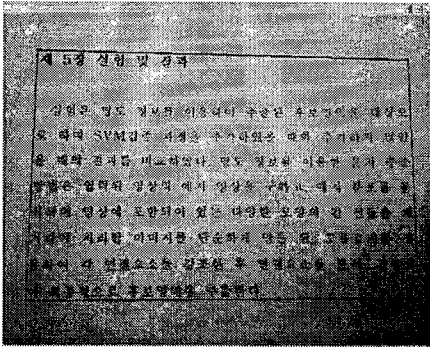 제 5장 실험 및 결과
실험은 명도 정보를 이용하여 추출된 후보영역을 대상으
로 하며 SVM검증 과정을 추가하였을 때와 추가하지 않았
을 때의 결과를 비교하였다. 명도 정보를 이용한 문자 추출
방법은 입력된 영상의 에지 영상을 구하고, 에지 분포를 통
영상에 포함되어 있는 다양한 모양의 긴 선들을 제
처리한 이미지를 단순화시
각 연결요소를 검출한 후 연결요소를
후보영역을 추출한다.